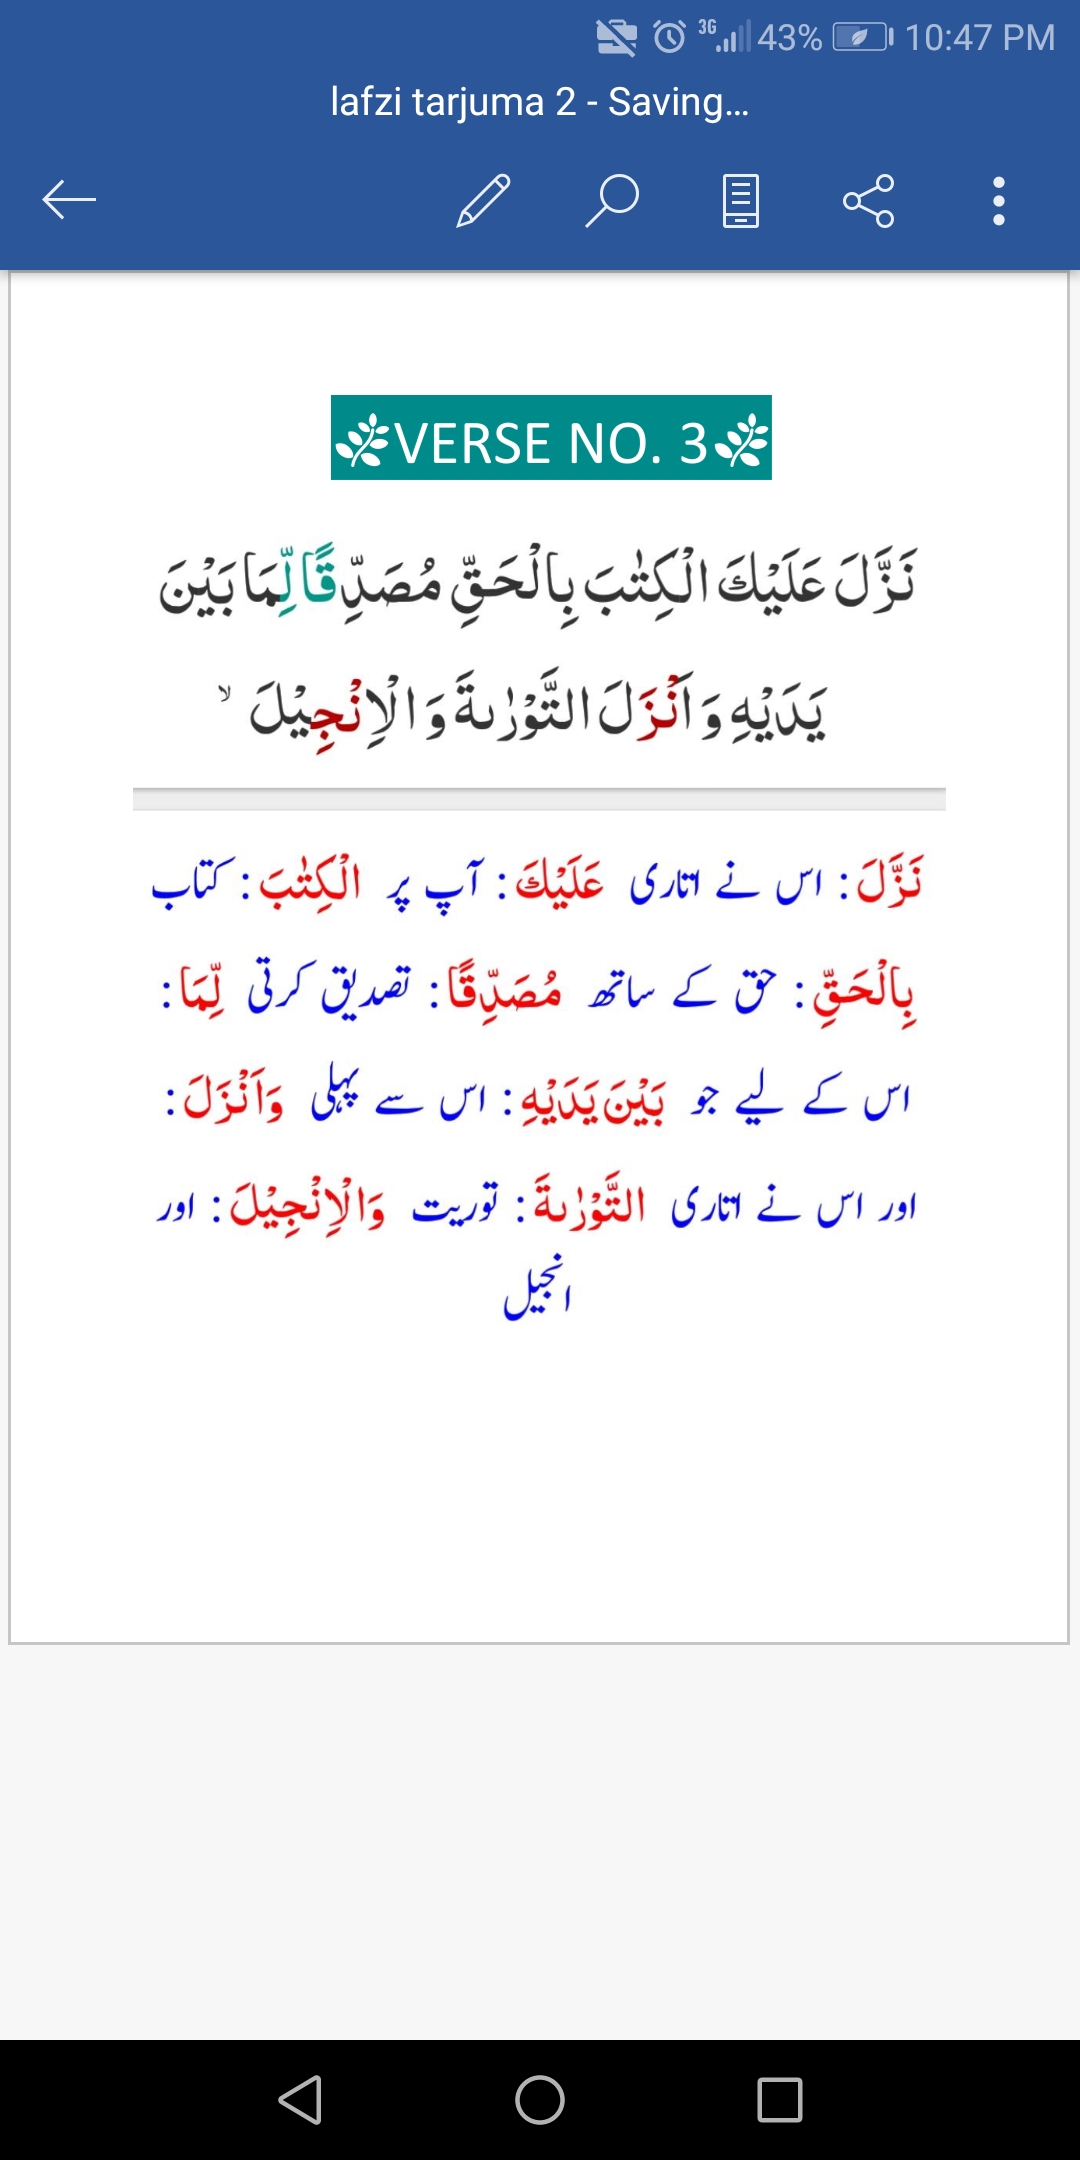 3G 43% 10:47 PM
lafzi tarjuma 2 - Saving...
VERSE NO. 3
نَزَّلَ عَلَيْكَ الْكِتٰبَ بِالْحَقِّ مُصَدِّقًا لِّمَا بَيْنَ
يَدَيْهِ وَ اَنْزَلَ التَّوْرٰىةَ وَ الْاِنْجِيْلَ ۙ
نَزَّلَ : اس نے اتاری عَلَيْكَ : آپ پر الْكِتٰبَ : کتاب
بِالْحَقِّ : حق کے ساتھ مُصَدِّقًا : تصدیق کرتی لِّمَا :
اس کے لیے جو بَيْنَ يَدَيْهِ : اس سے پہلی وَاَنْزَلَ :
اور اس نے اتاری التَّوْرٰىةَ : توریت وَالْاِنْجِيْلَ : اور
انجیل